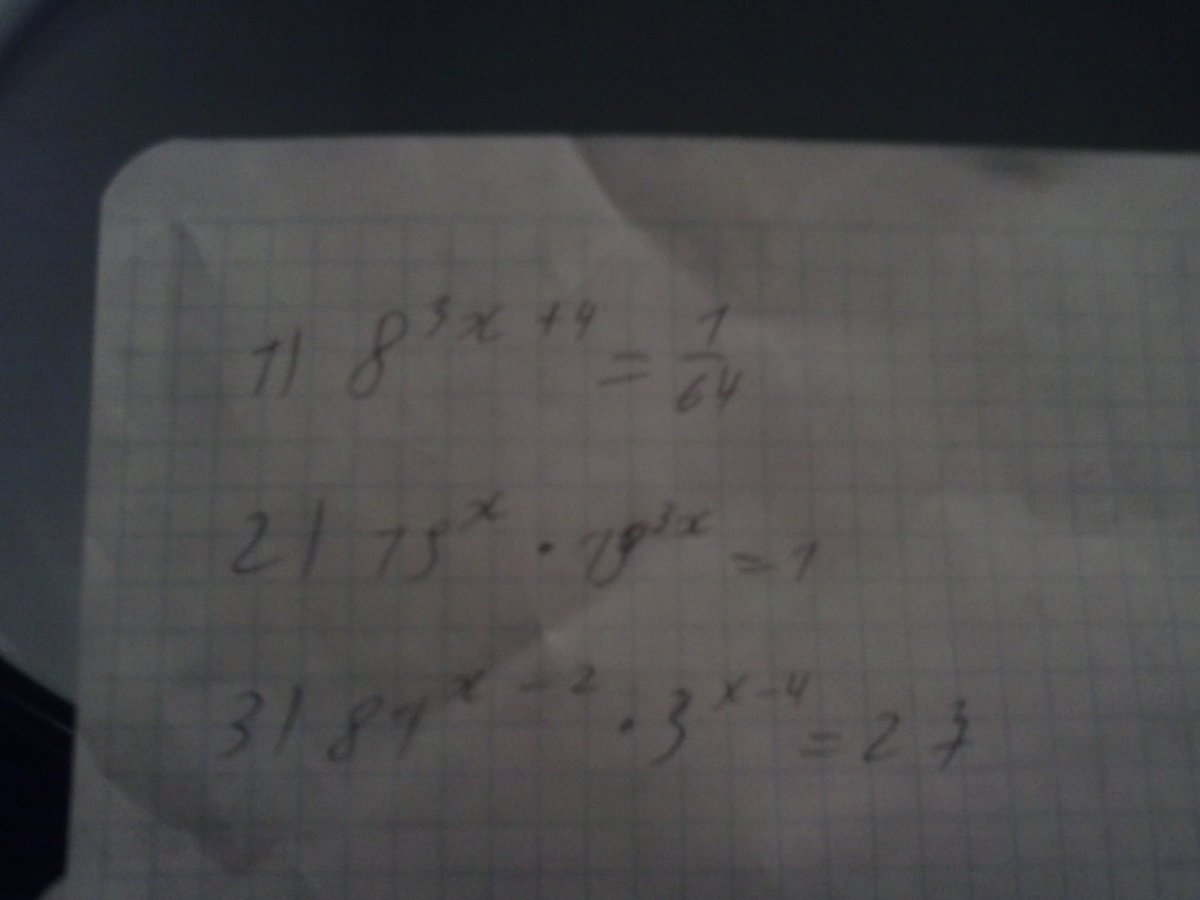 1) 8^{3x+4} = \frac{1}{64}
2) 15^x · = 1
3) 81^{x-2} · 3^{x-4} = 27